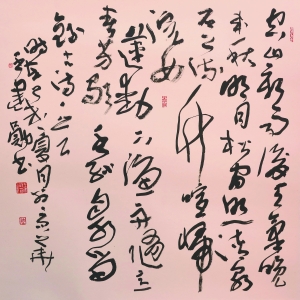 空山新雨後天氣晚
来秋明月松間照清泉
石上流竹喧歸
浣女
蓮動下漁舟隨意
春芳歇王孫自可留
夏月於京華
書